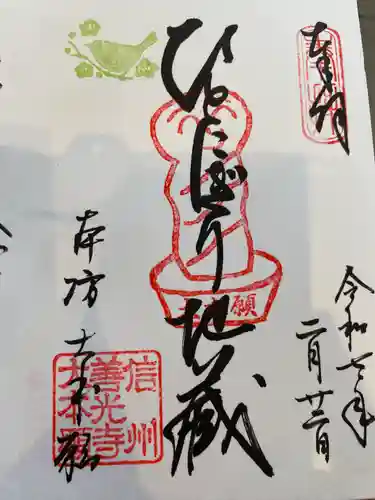 奉拝
ひとにぎり地蔵
願
令和七年
二月廿三日
本坊 大本願
信州
善光寺
大本願